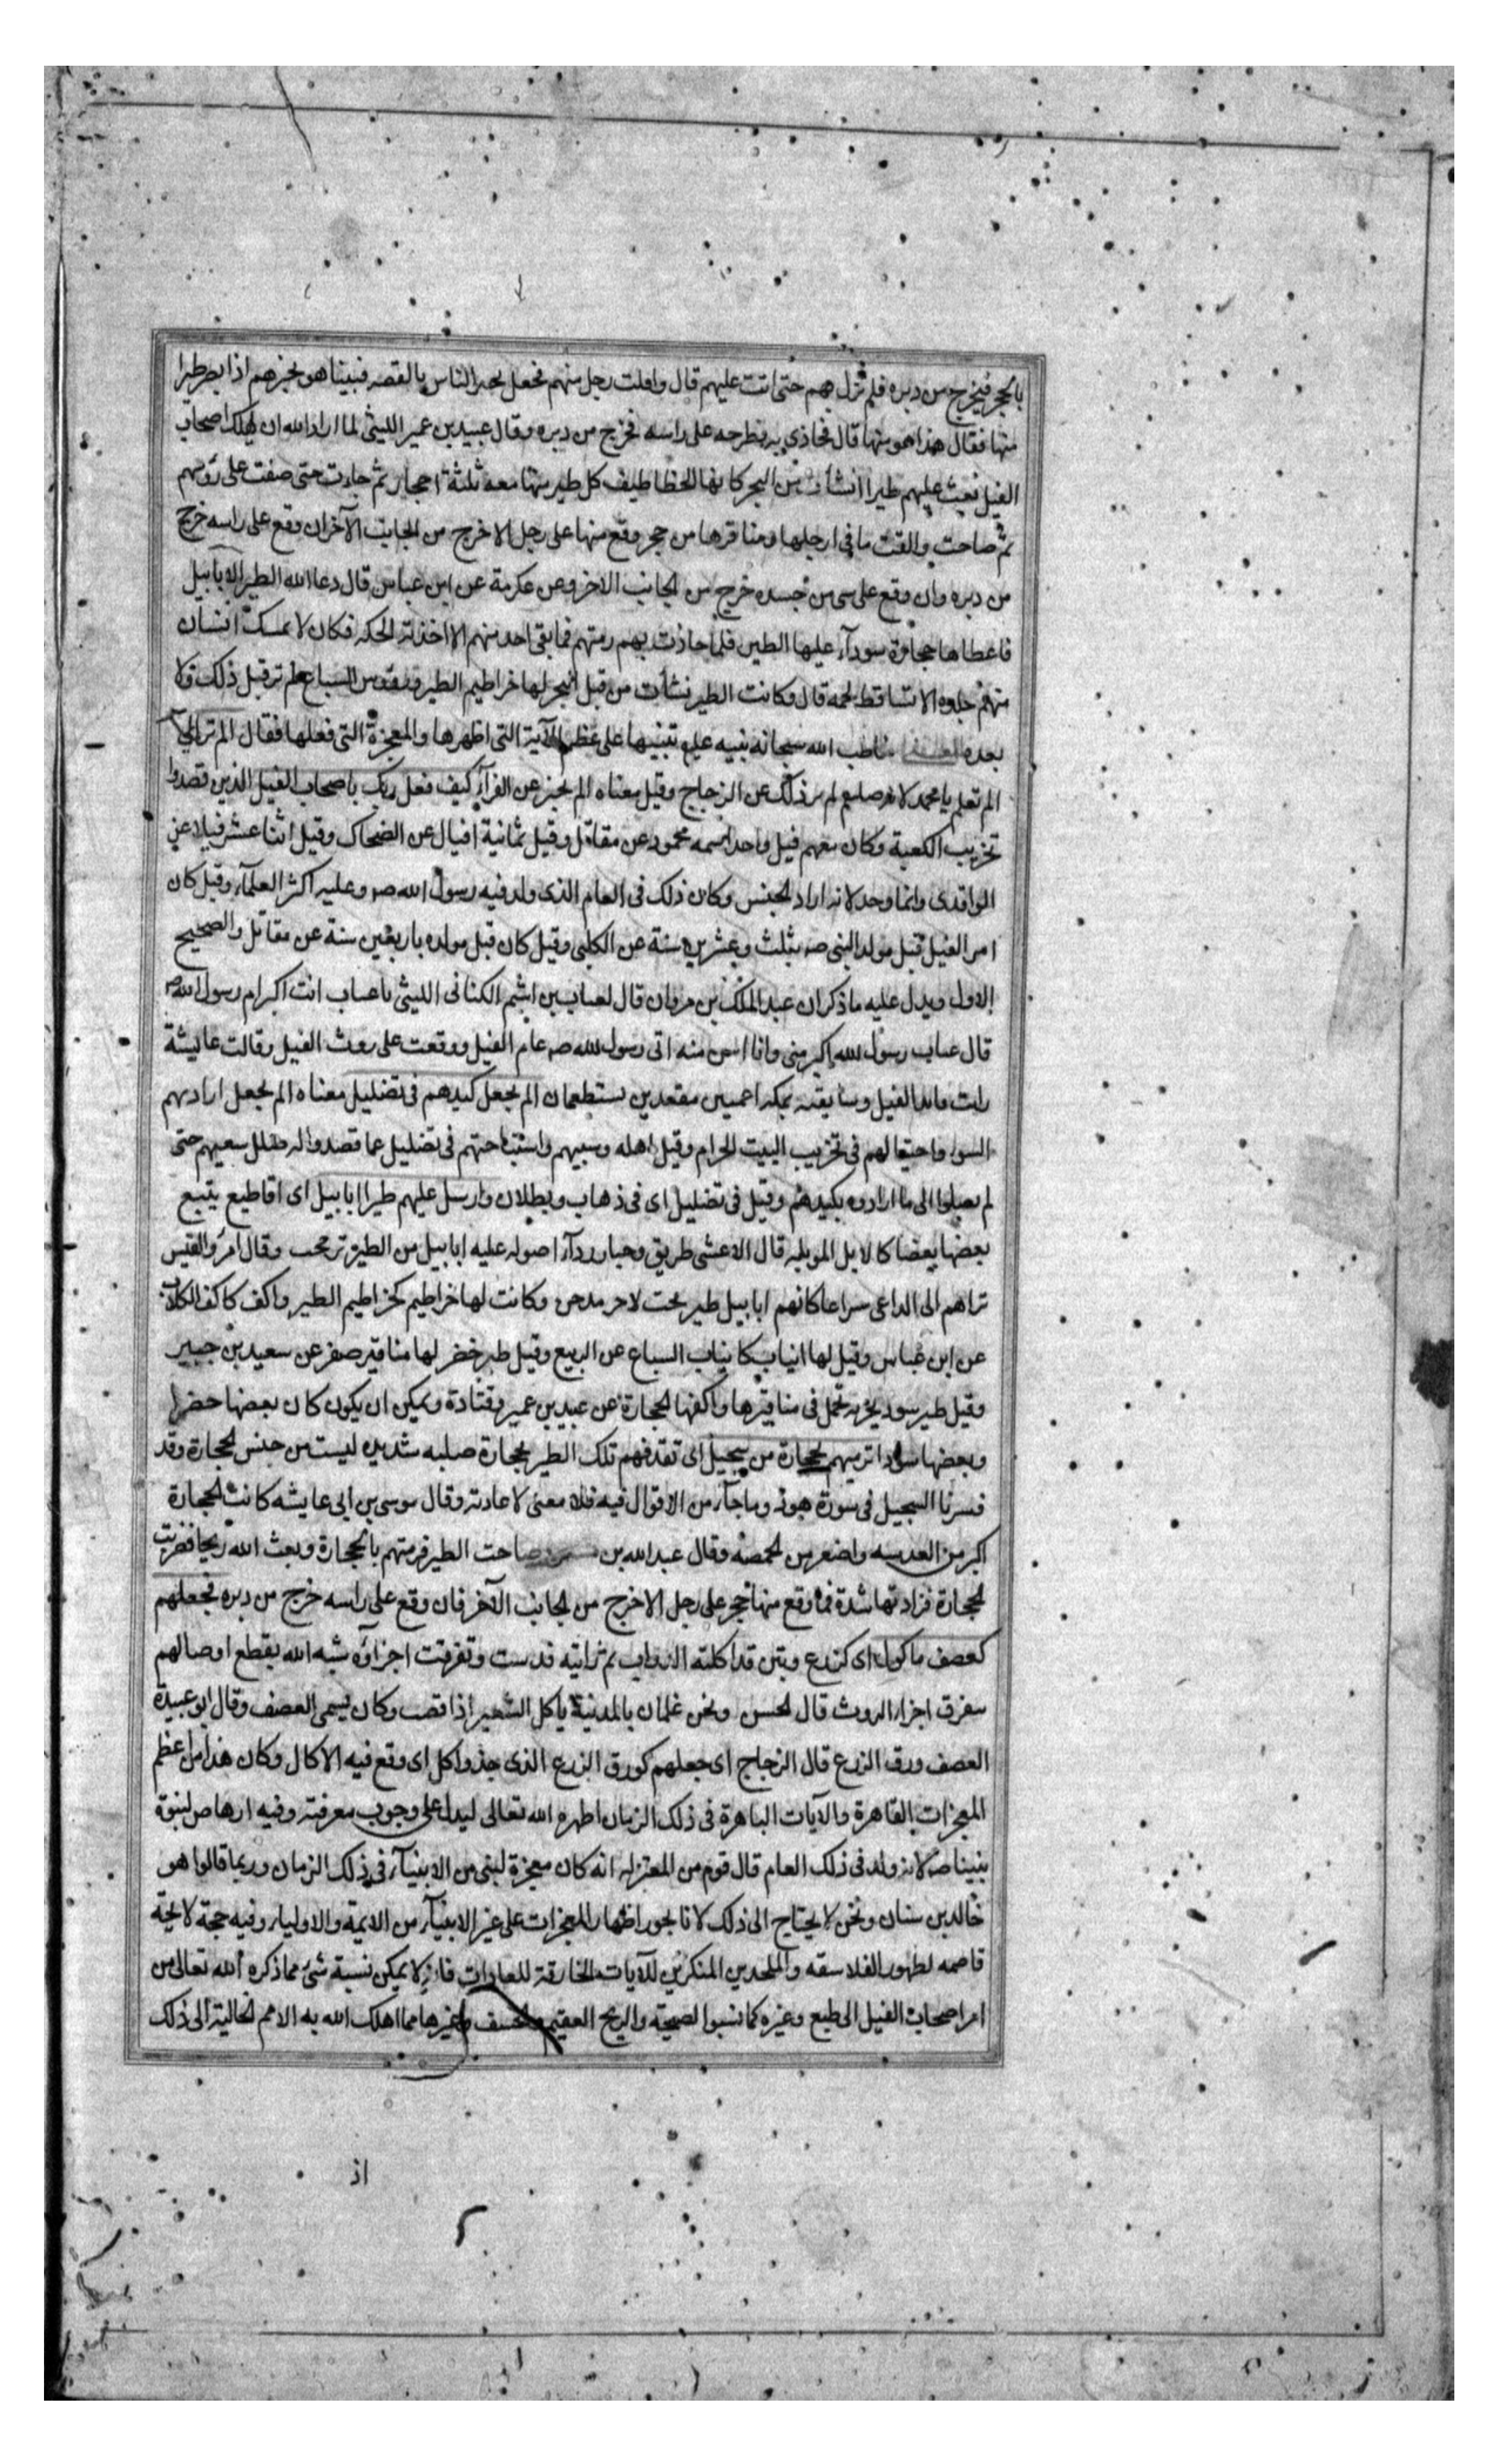 بالحجر فيخرج من دبره فلم تزل بهم حتى اتت عليهم قال وافلت رجل منهم فجعل يخبر الناس بالقصه فبينا هو يخبرهم اذا بصر طيرا
منها فقال هذا هو منها قال فحاذى به فطرحه على راسه فخرج من دبره وقال عبيد بن عمير الليثى لما اراد الله ان يهلك اصحاب
الفيل بعث عليهم طيرا انشات من البحر كانها الخطاطيف كل طير منها معه ثلثة احجار ثم جاءت حتى صفت على رؤسهم
ثم صاحت والقت ما فى ارجلها ومناقرها من حجر وقع منها على رجل الا خرج من الجانب الآخر ان وقع على راسه خرج
من دبره وان وقع على شى من جسده خرج من الجانب الاخر وعن عكرمة عن ابن عباس قال دعا الله الطير الابابيل
فاعطاها حجارة سودآء عليها الطين فلما حاذت بهم رمتهم فما بقى احد منهم الا اخذته الحكه فكان لا يمسك انسان
منهم جلده الا تساقط لحمه قال وكانت الطير نشات من قبل البحر لها خراطيم الطير ورؤس السباع لم تر قبل ذلك ولا
بعده خاطب الله سبحانه نبيه عليه تنبيها على عظم الآية التى اظهرها والمعجزة التى فعلها فقال الم تر اى
الم تعلم يا محمد لانه صلعم لم ير ذلك عن الزجاج وقيل معناه الم تخبر عن الفرآء كيف فعل ربك باصحاب الفيل الذين قصدوا
تخريب الكعبة وكان معهم فيل واحد اسمه محمود عن مقاتل وقيل ثمانية افيال عن الضحاك وقيل اثنا عشر فيلا عن
الواقدى وانما وحد لانه اراد الجنس وكان ذلك فى العام الذى ولد فيه رسول الله صه وعليه اكثر العلمآء وقيل كان
امر الفيل قبل مولد النبى صه بثلث وعشرين سنة عن الكلبى وقيل كان قبل مولده باربعين سنة عن مقاتل والصحيح
الاول ويدل عليه ما ذكر ان عبد الملك بن مروان قال لعتاب بن اشيم الكنانى الليثى يا عتاب انت اكبر ام رسول الله صه
قال عتاب رسول الله اكبر منى وانا اسن منه اتى رسول الله صه عام الفيل ووقعت على روث الفيل وقالت عايشة
رايت قايد الفيل وسايقه بمكه اعميين مقعدين يستطعمان الم يجعل كيدهم فى تضليل معناه الم يجعل ارادتهم
السوء واحتيالهم فى تخريب البيت الحرام وقيل اهله وسبيهم واستباحتهم فى تضليل عما قصدوا له ضلل سعيهم حتى
لم يصلوا الى ما ارادوه بكيدهم وقيل فى تضليل اى فى ذهاب وبطلان وارسل عليهم طيرا ابابيل اى اقاطيع يتبع
بعضها بعضا كالابل الموبله قال الاعشى طريق وجبار رواء اصوله عليه ابابيل من الطير تنعب وقال امرؤ القيس
تراهم الى الداعى سراعا كانهم ابابيل طير تحت وكانت لها خراطيم كخراطيم الطير واكف كاكف الكلاب
عن ابن عباس وقيل لها انياب كانياب السباع عن الربيع وقيل طير خضر لها مناقير صفر عن سعيد بن جبير
وقيل طير سود بحريه تحمل فى مناقيرها واكفها الحجارة عن عبيد بن عمير وقتادة ويمكن ان يكون كان بعضها خضرا
وبعضها سودا ترميهم بحجارة من سجيل اى تقذفهم تلك الطير بحجارة صلبه شديده ليست من جنس الحجارة وقد
فسرنا السجيل فى سورة هود وما جآء من الاقوال فيه فلا معنى لاعادته وقال موسى بن ابى عايشه كانت الحجارة
اكبر من العدسه واصغر من الحمصه وقال عبد الله بن صاحت الطير فرمتهم بالحجارة وبعث الله ريحا فضربت
الحجارة فزادتها شدة فما وقع منها حجر على رجل الا خرج من الجانب الآخر فان وقع على راسه خرج من دبره فجعلهم
كعصف ماكول اى كزرع وتبن قد اكلته الدواب ثم راثته فديست وتفرقت اجزاؤه شبه الله تقطع اوصالهم
بتفرق اجزاء الروث قال الحسن ونحن غلمان بالمدينة ياكل الشعير اذا قصب وكان يسمى العصف وقال ابو عبيدة
العصف ورق الزرع قال الزجاج اى جعلهم كورق الزرع الذى جذ واكل اى وقع فيه الاكال وكان هذا من اعظم
المعجزات القاهرة والآيات الباهرة فى ذلك الزمان اظهره الله تعالى ليدل على وجوب معرفته وفيه ارهاص لنبوة
نبينا صه لانه ولد فى ذلك العام قال قوم من المعتزله انه كان معجزة لنبى من الانبيآء فى ذلك الزمان وربما قالوا هو
خالد بن سنان ونحن لا نحتاج الى ذلك لانا نجوز اظهار المعجزات على غير الانبيآء من الايمة والاولياء وفيه حجة لايحة
قاصمه لظهور الفلاسفه والملحدين المنكرين للآيات الخارقة للعادات فانه لا يمكن نسبة شىء مما ذكره الله تعالى من
امر اصحاب الفيل الى طبع وغيره كما نسبوا الصيحة والريح العقيم والخسف وغيرها مما اهلك الله به الامم الخالية الى ذلك
اذ